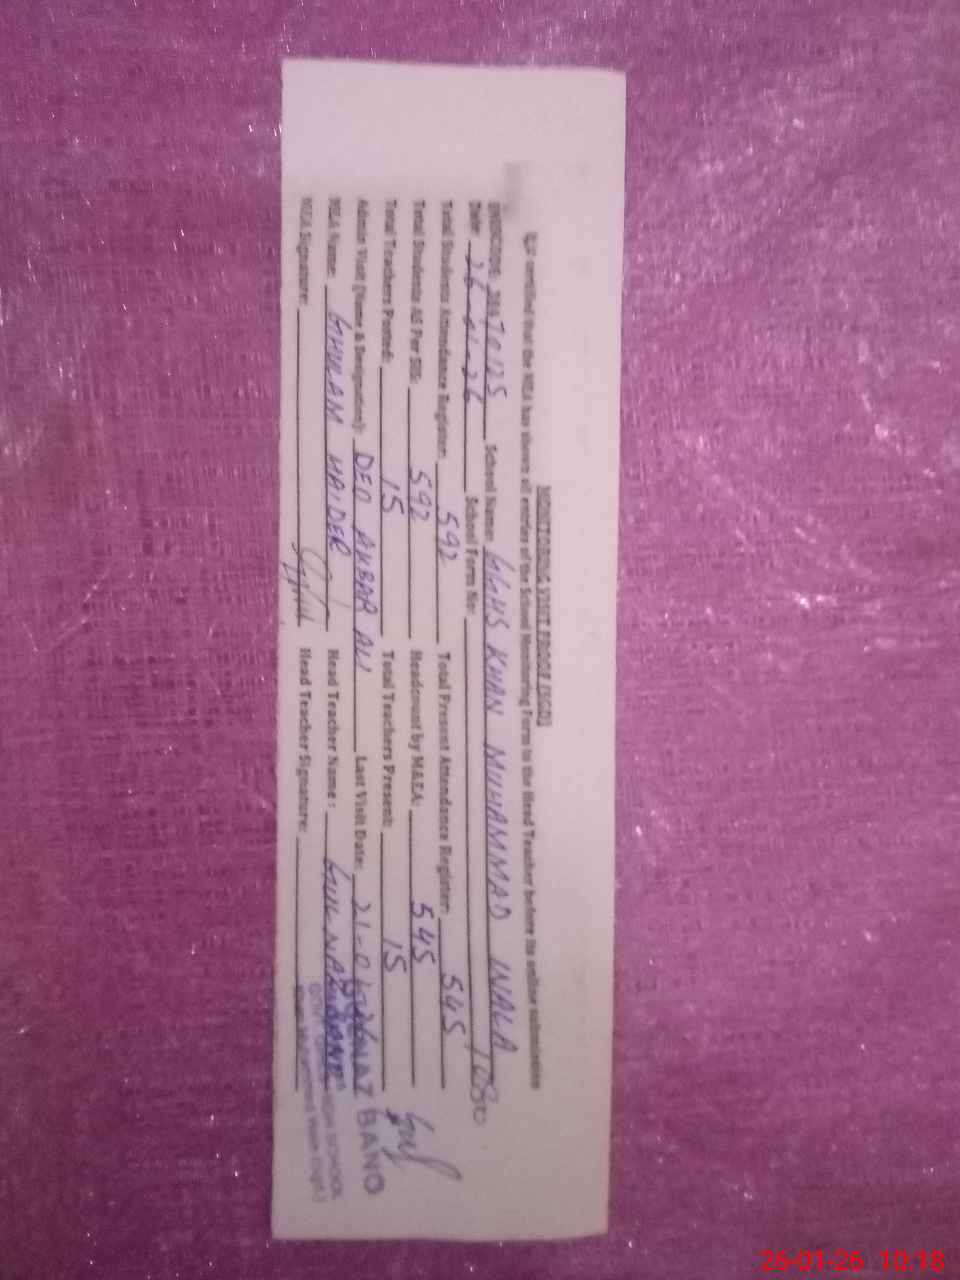 MONITORING VISIT PROOF (SGD)
It is certified that the MEA has shown all entries of the School Monitoring Form to the Head Teacher before its online submission
EMISCODE: 38470125 School Name: GGHS KHAN MUHAMMAD WALA
Date: 26-01-26 School Form No: 1080
Total Students Attendance Register: 592 Total Present Attendance Register: 545
Total Students AS Per SIS: 592 Headcount by MAEA: 545
Total Teachers Posted: 15 Total Teachers Present: 15
Admin Visit (Name & Designation): DEO AKBAR ALI Last Visit Date: 21-01-26
MEA Name: GHULAM HAIDER Head Teacher Name: GULNAZ BANO
MEA Signature: Head Teacher Signature:
GULNAZ BANO
GOVT GIRLS HIGH SCHOOL
Khan Muhammad Wala
10:18